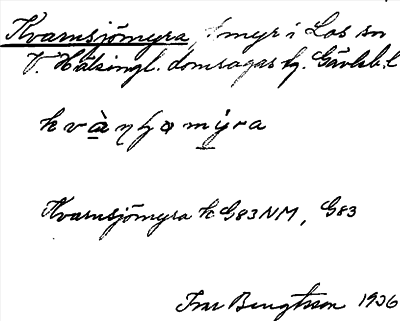 Kvarnsjömyra, myr i Los sn
V. Hälsingl. domsagas tg. Gävleb. l
kvàɳɧomýra
Kvarnsjömyra k G83NM, G83
Ivar Bengtsson 1936